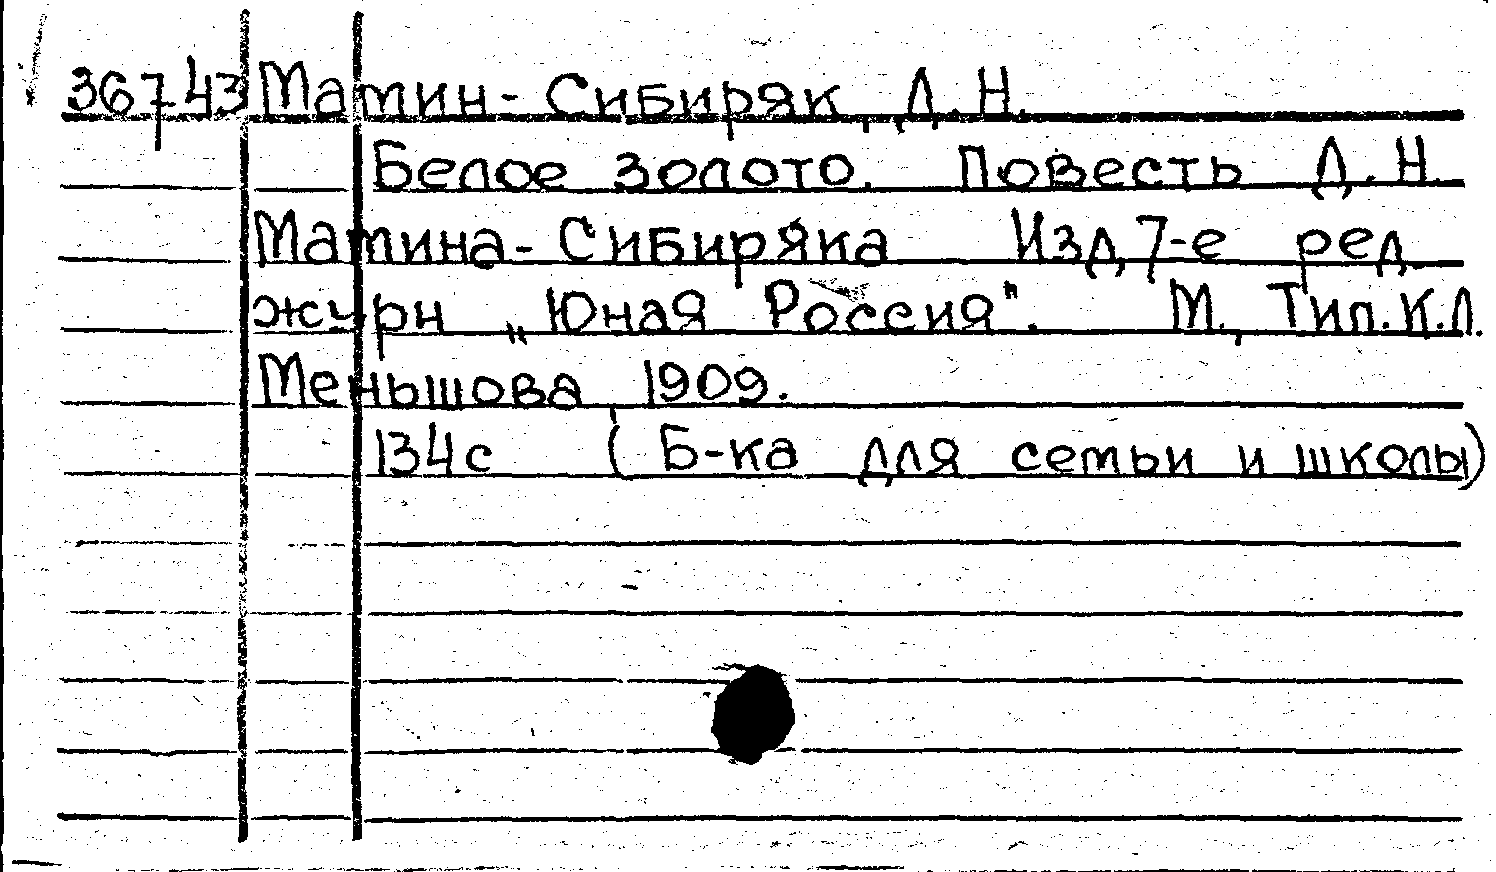 36743 Мамин-Сибиряк, Д.Н.
Белое золото. Повесть Д.Н.
Мамина-Сибиряка Изд, 7-е ред
журн „Юная Россия". М., Тип. К.Л.
Меньшова 1909.
134с (Б-ка для семьи и школы)